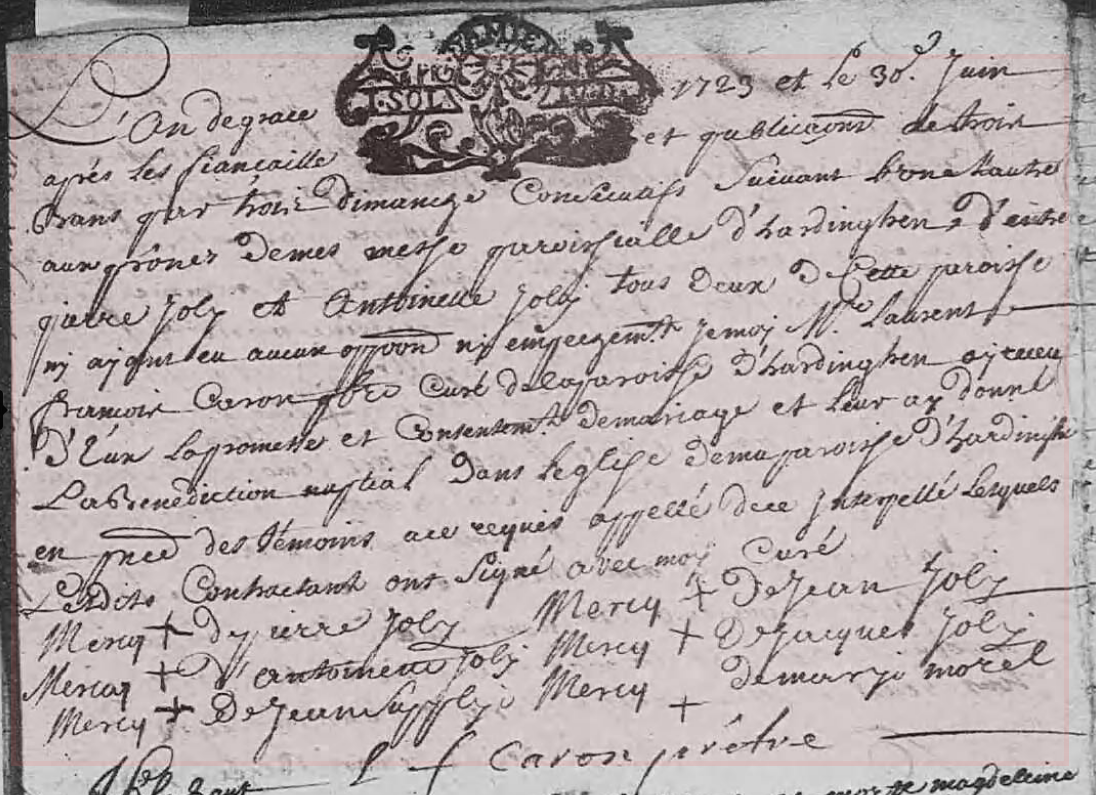 L'An de grace 1723 et le 30e. Juin
après les fiancaille et publicaons de trois
Bans par trois dimanege Consecutifs Suivant l'une L'autre
aux prônes de mes messe paroissialle d'hardinghen, d'entre
pierre Joly et Antoinette Joly tous deux de Cette paroisse
ny ayant eu aucun oppoon ny empeegemt. Je moy Mre. Laurent
francois Caron pbre Curé de la paroisse d'hardinghen ay receu
d'Eux la promesse et Consentemt. de mariage et leur ay donné
La Benediction nuptial Dans L'eglise de ma paroisse d'hardinghen
en pnce des témoins a ce requis appellé de ce Interpellé Lesquels
Lesdits Contractant ont Signé avec moy Curé
Mercq + de pierre Joly Mercq + De Jean Joly
Mercq + d'antoinette Joly Mercq + De Jacques Joly
Mercq + De Jean Mercq + de marye morel
L f Caron prêtre
magdeleine